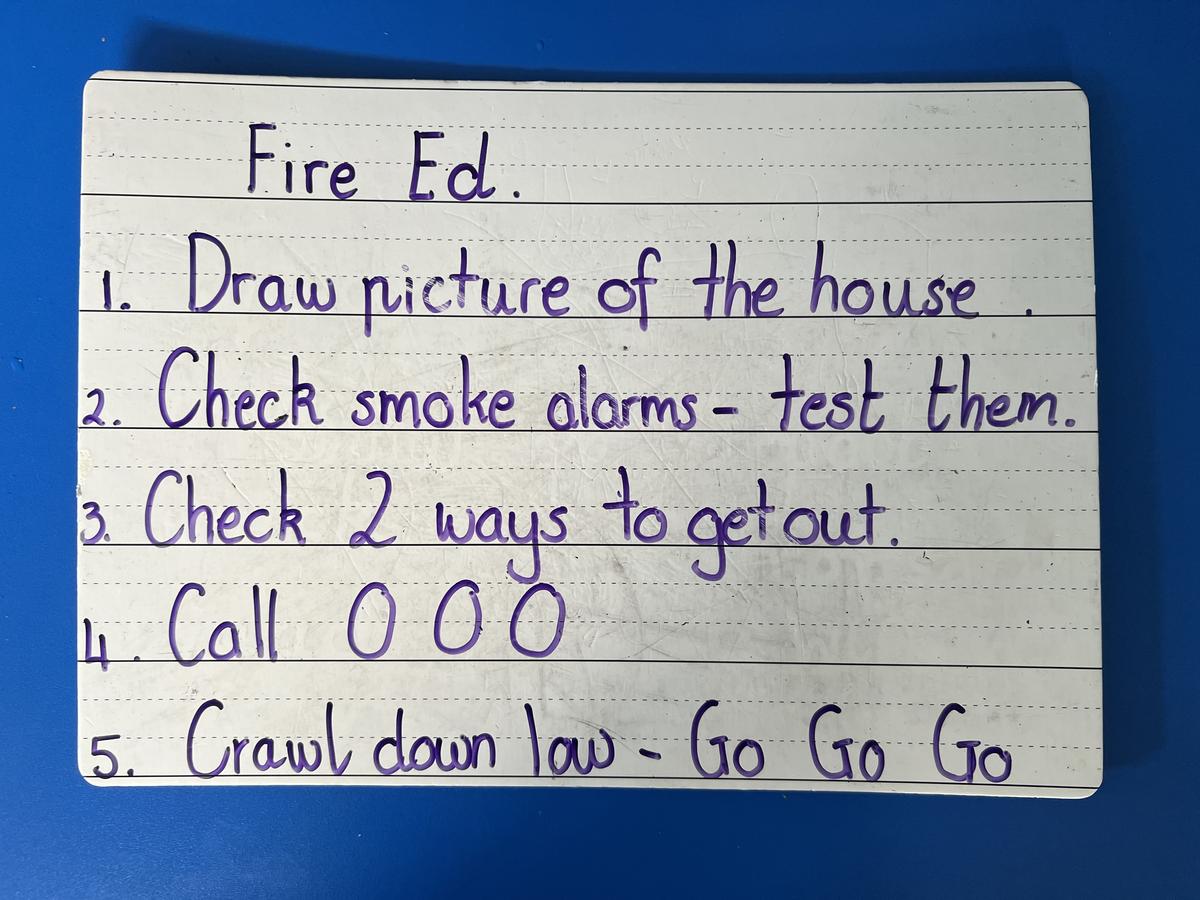 Fire Ed.
1. Draw picture of the house .
2. Check smoke alarms - test them.
3. Check 2 ways to get out.
4. Call 0 0 0
5. Crawl down low - Go Go Go